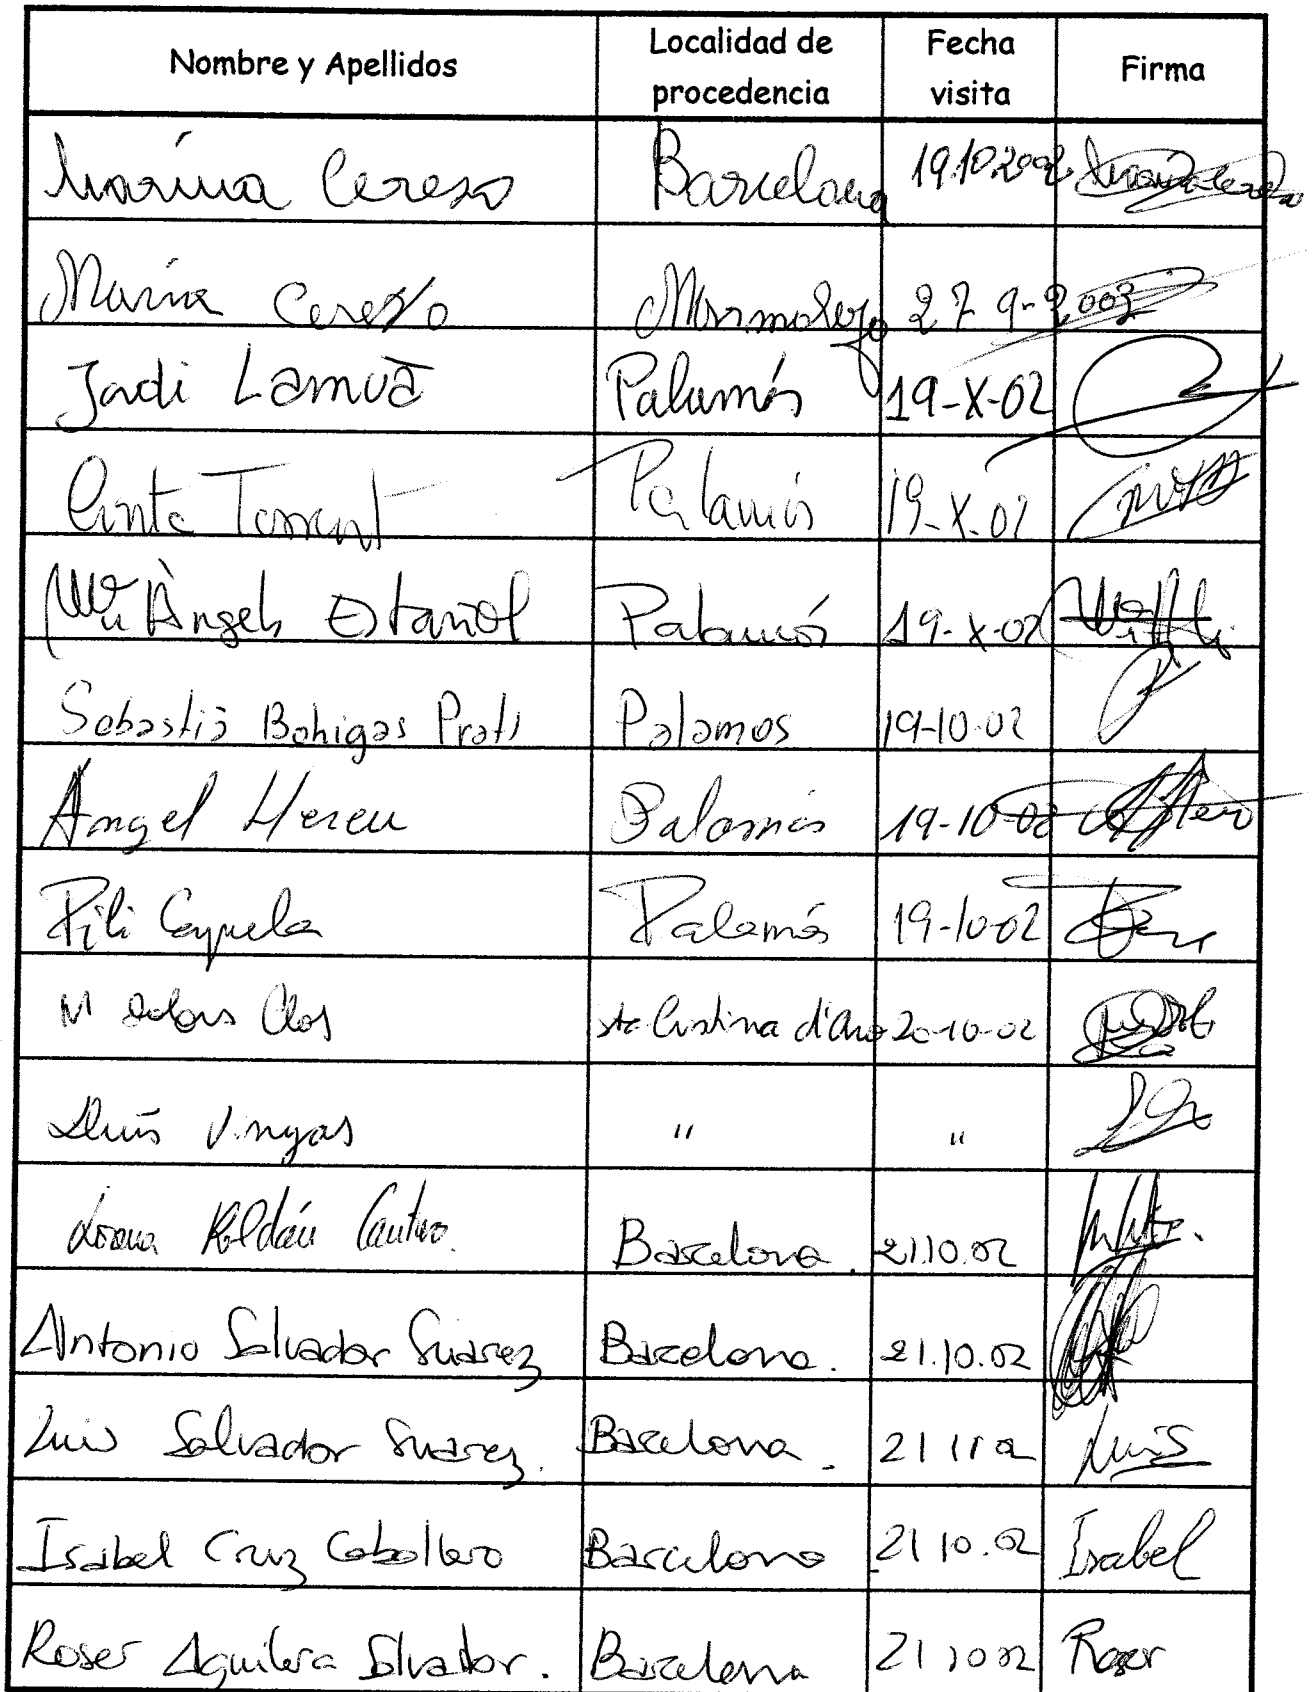 Nombre y Apellidos Localidad de procedencia Fecha visita Firma
Marina Cerezo Barcelona 19.10.2002
María Cerezo Marmolejo 27 9-2002
Jordi Lamuà Palamós 19-X-02
Cinta Torrent Palamós 19-X-02
Mª Àngels Estañol Palamós 19-X-02
Sebastià Bohigas Prats Palamos 19-10-02
Angel Hereu Palamós 19-10-02
Pili Palamós 19-10-02
M Dolors Clos sta Cristina d'Aro 20-10-02
Lluís Vinyas " "
Roldán Cantero. Barcelona. 21.10.02
Antonio Salvador Suarez Barcelona. 21.10.02
Luis Salvador Suarez. Barcelona. 21 Luis
Isabel Cruz Caballero Barcelona 21 10.02 Isabel
Roser Aguilera Salvador. Barcelona 21 10 02 Roser